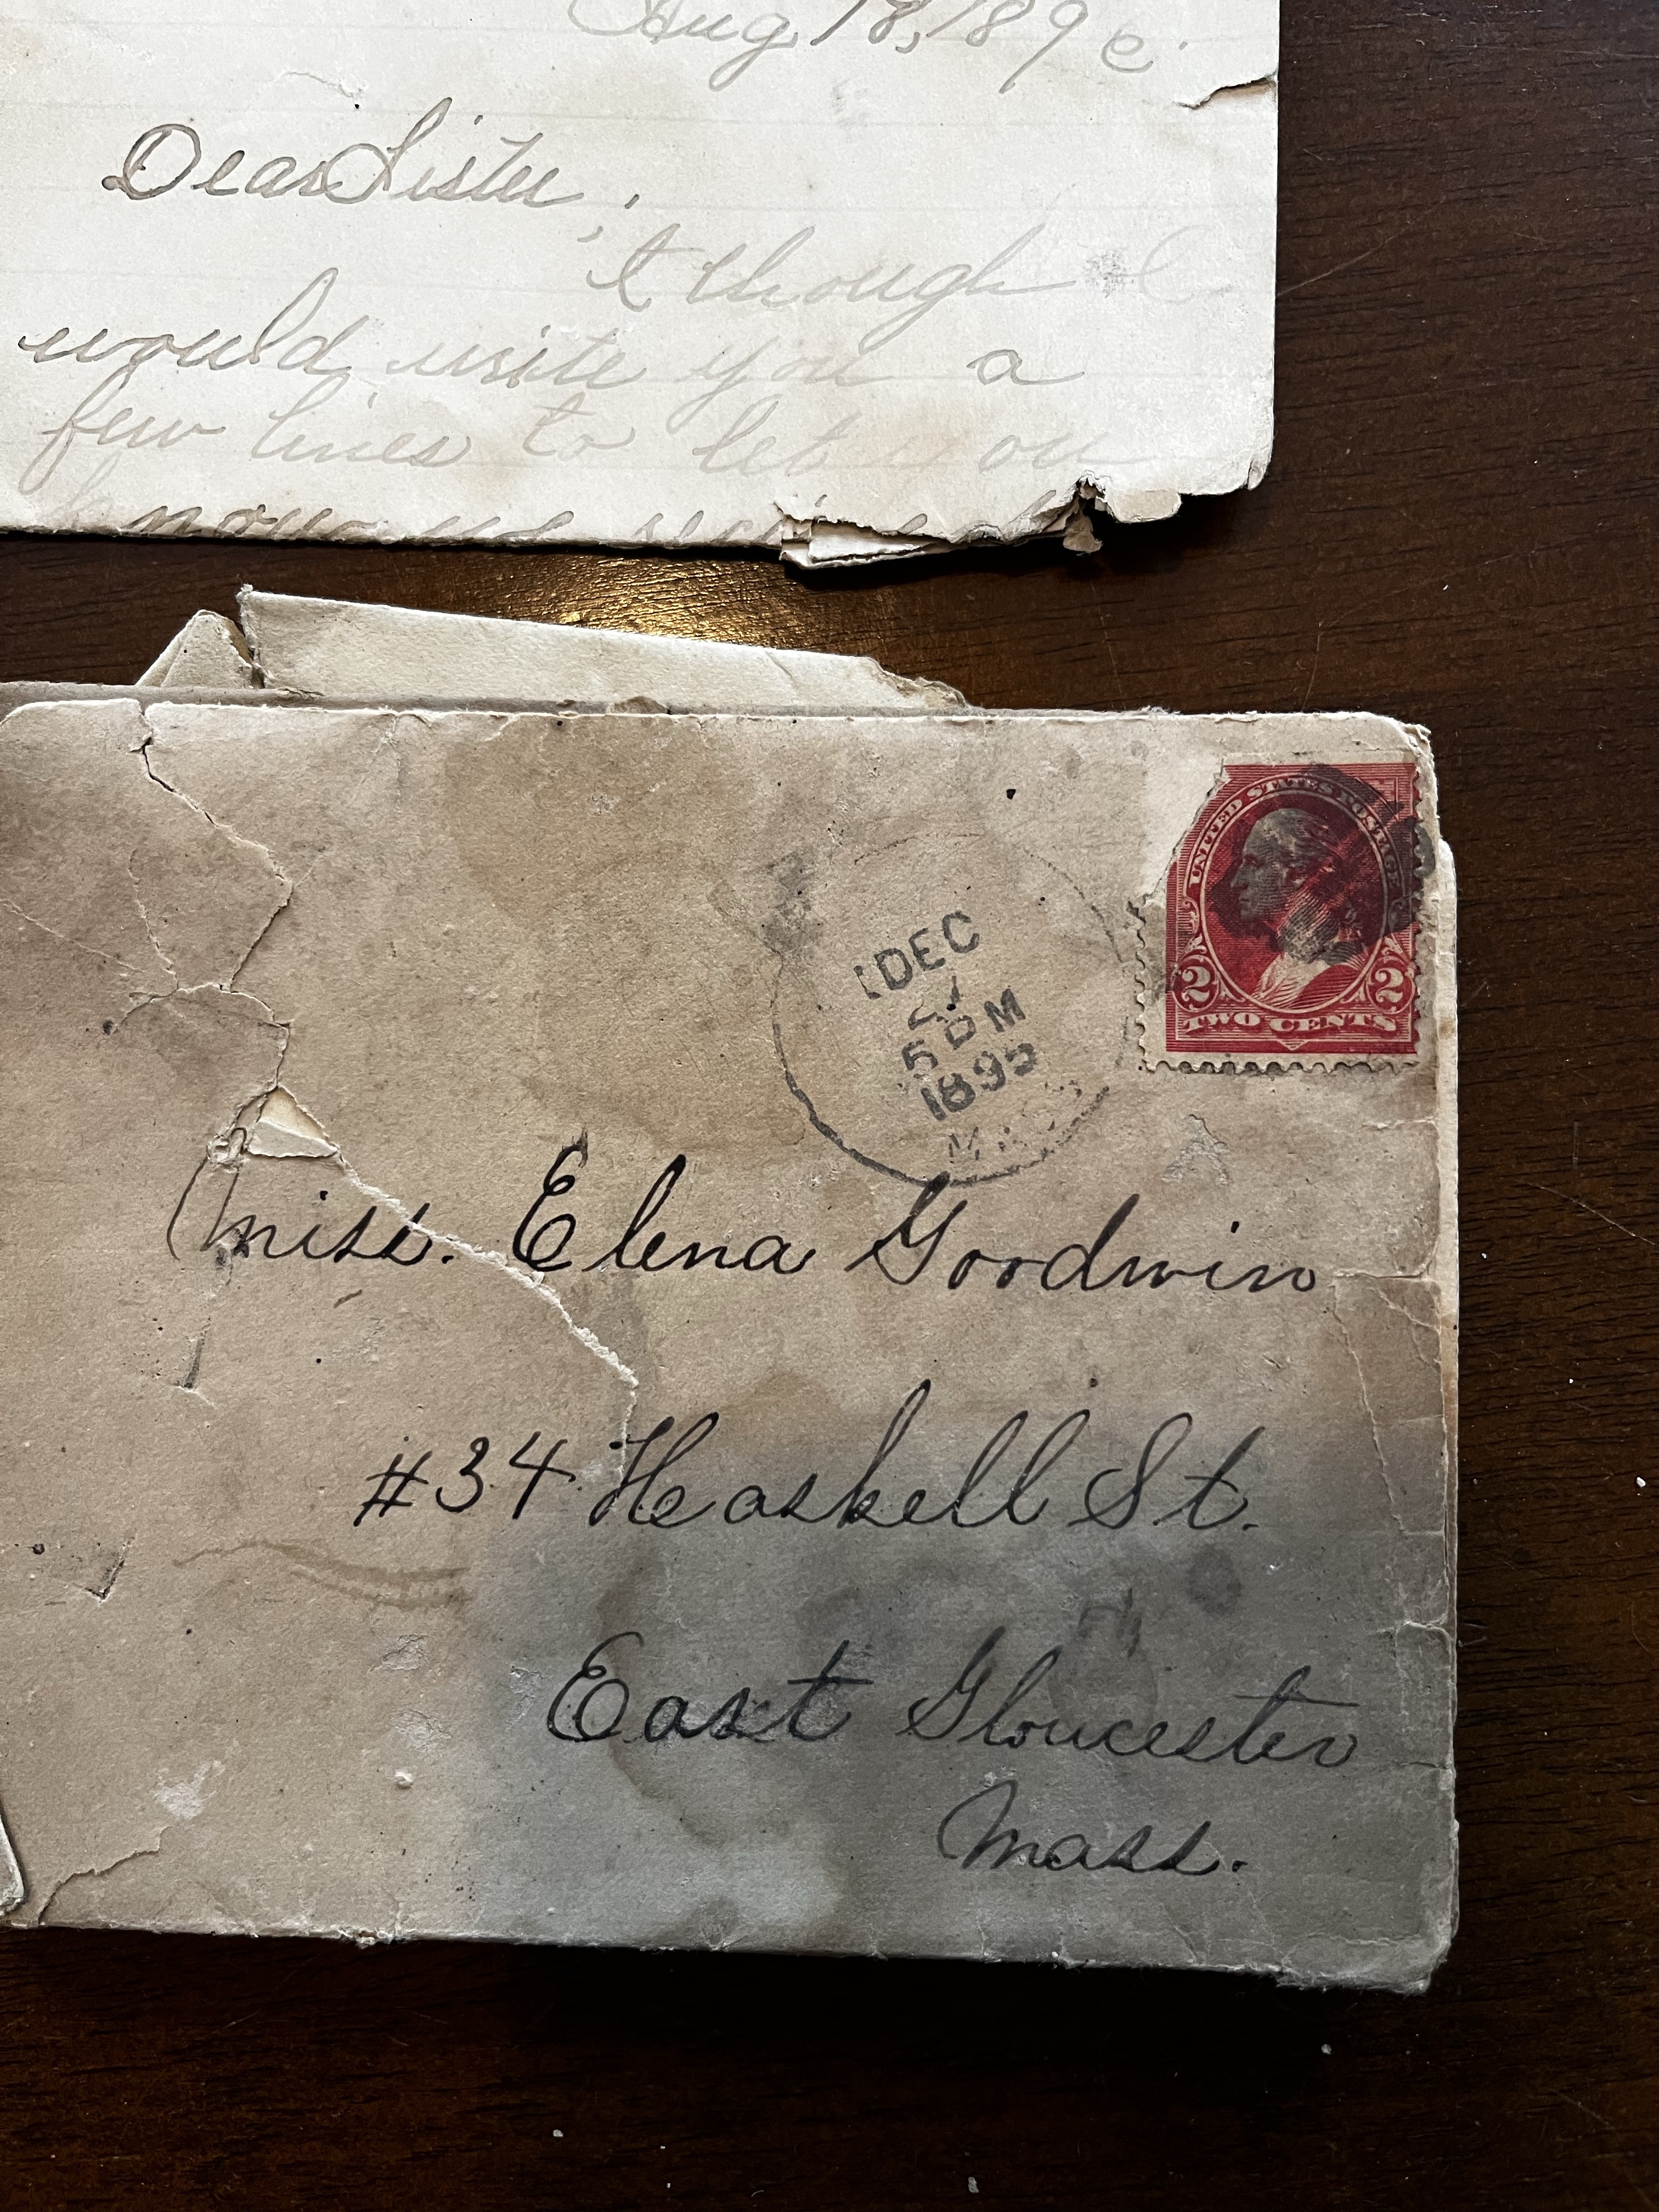 Aug 18, 189
Dear Sister,
I though I
would write you a
few lines to let you
know we
UNITED STATES POSTAGE
2 2
TWO CENTS
DEC
5 PM
1895
MASS
Miss. Elena Goodwin
#34 Haskell St.
East Gloucester
Mass.